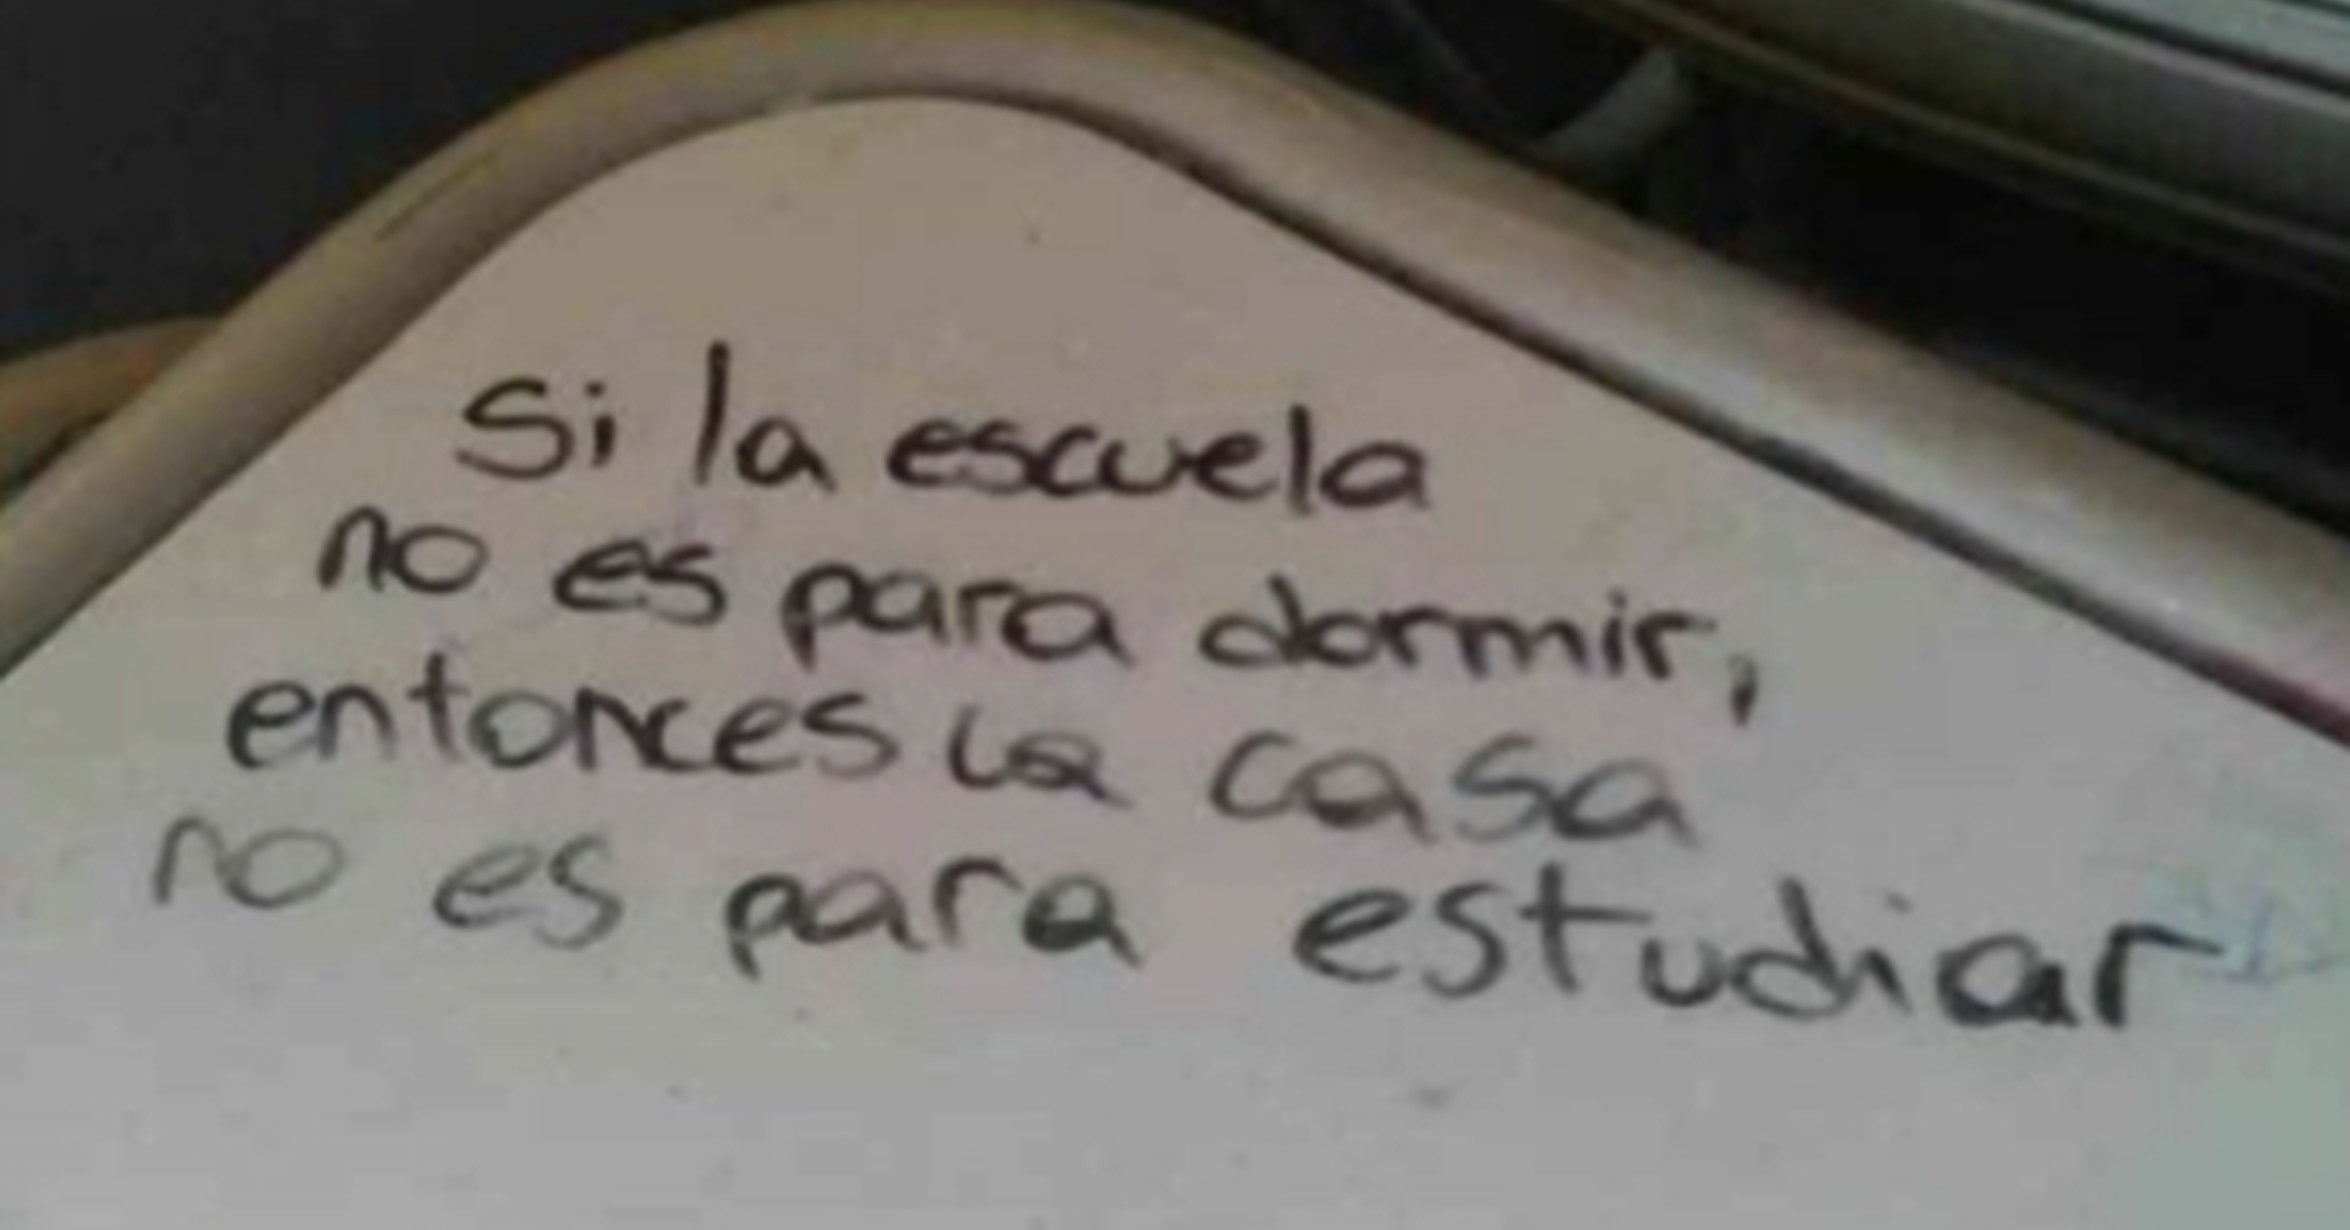 Si la escuela
no es para dormir,
entonces la casa
no es para estudiar